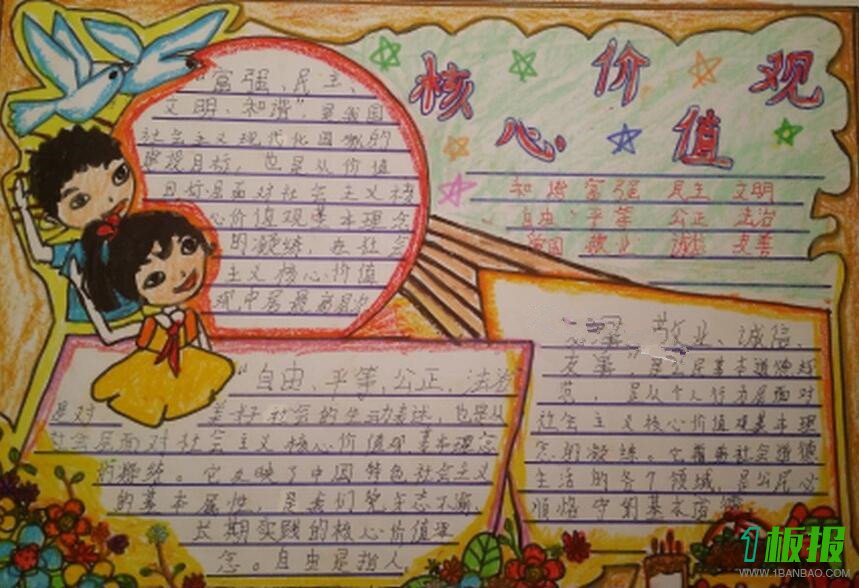 核心价值观
和谐 富强 民主 文明
自由 平等 公正 法治
爱国 敬业 诚信 友善
"富强、民主、
文明、和谐",是我国
社会主义现代化国家的
建设目标,也是从价值
目标层面对社会主义核
心价值观基本理念
的凝练,在社会
主义核心价值
观中居最高层次
"自由、平等、公正、法治
是对 美好社会的生动表述,也是从
社会层面对社会主义核心价值观基本理念
的凝练。它反映了中国特色社会主义
的基本属性,是我们 矢志不渝、
长期实践的核心价值理
念。自由是指人
敬业、诚信、
友善",是 民基本道德规
范,是从个人行为层面对
社会主义核心价值观基本理
念的凝练。它 社会道德
生活的各个领域,是公民必
须恪守的基本道德
1板报
WWW.1BANBAO.COM